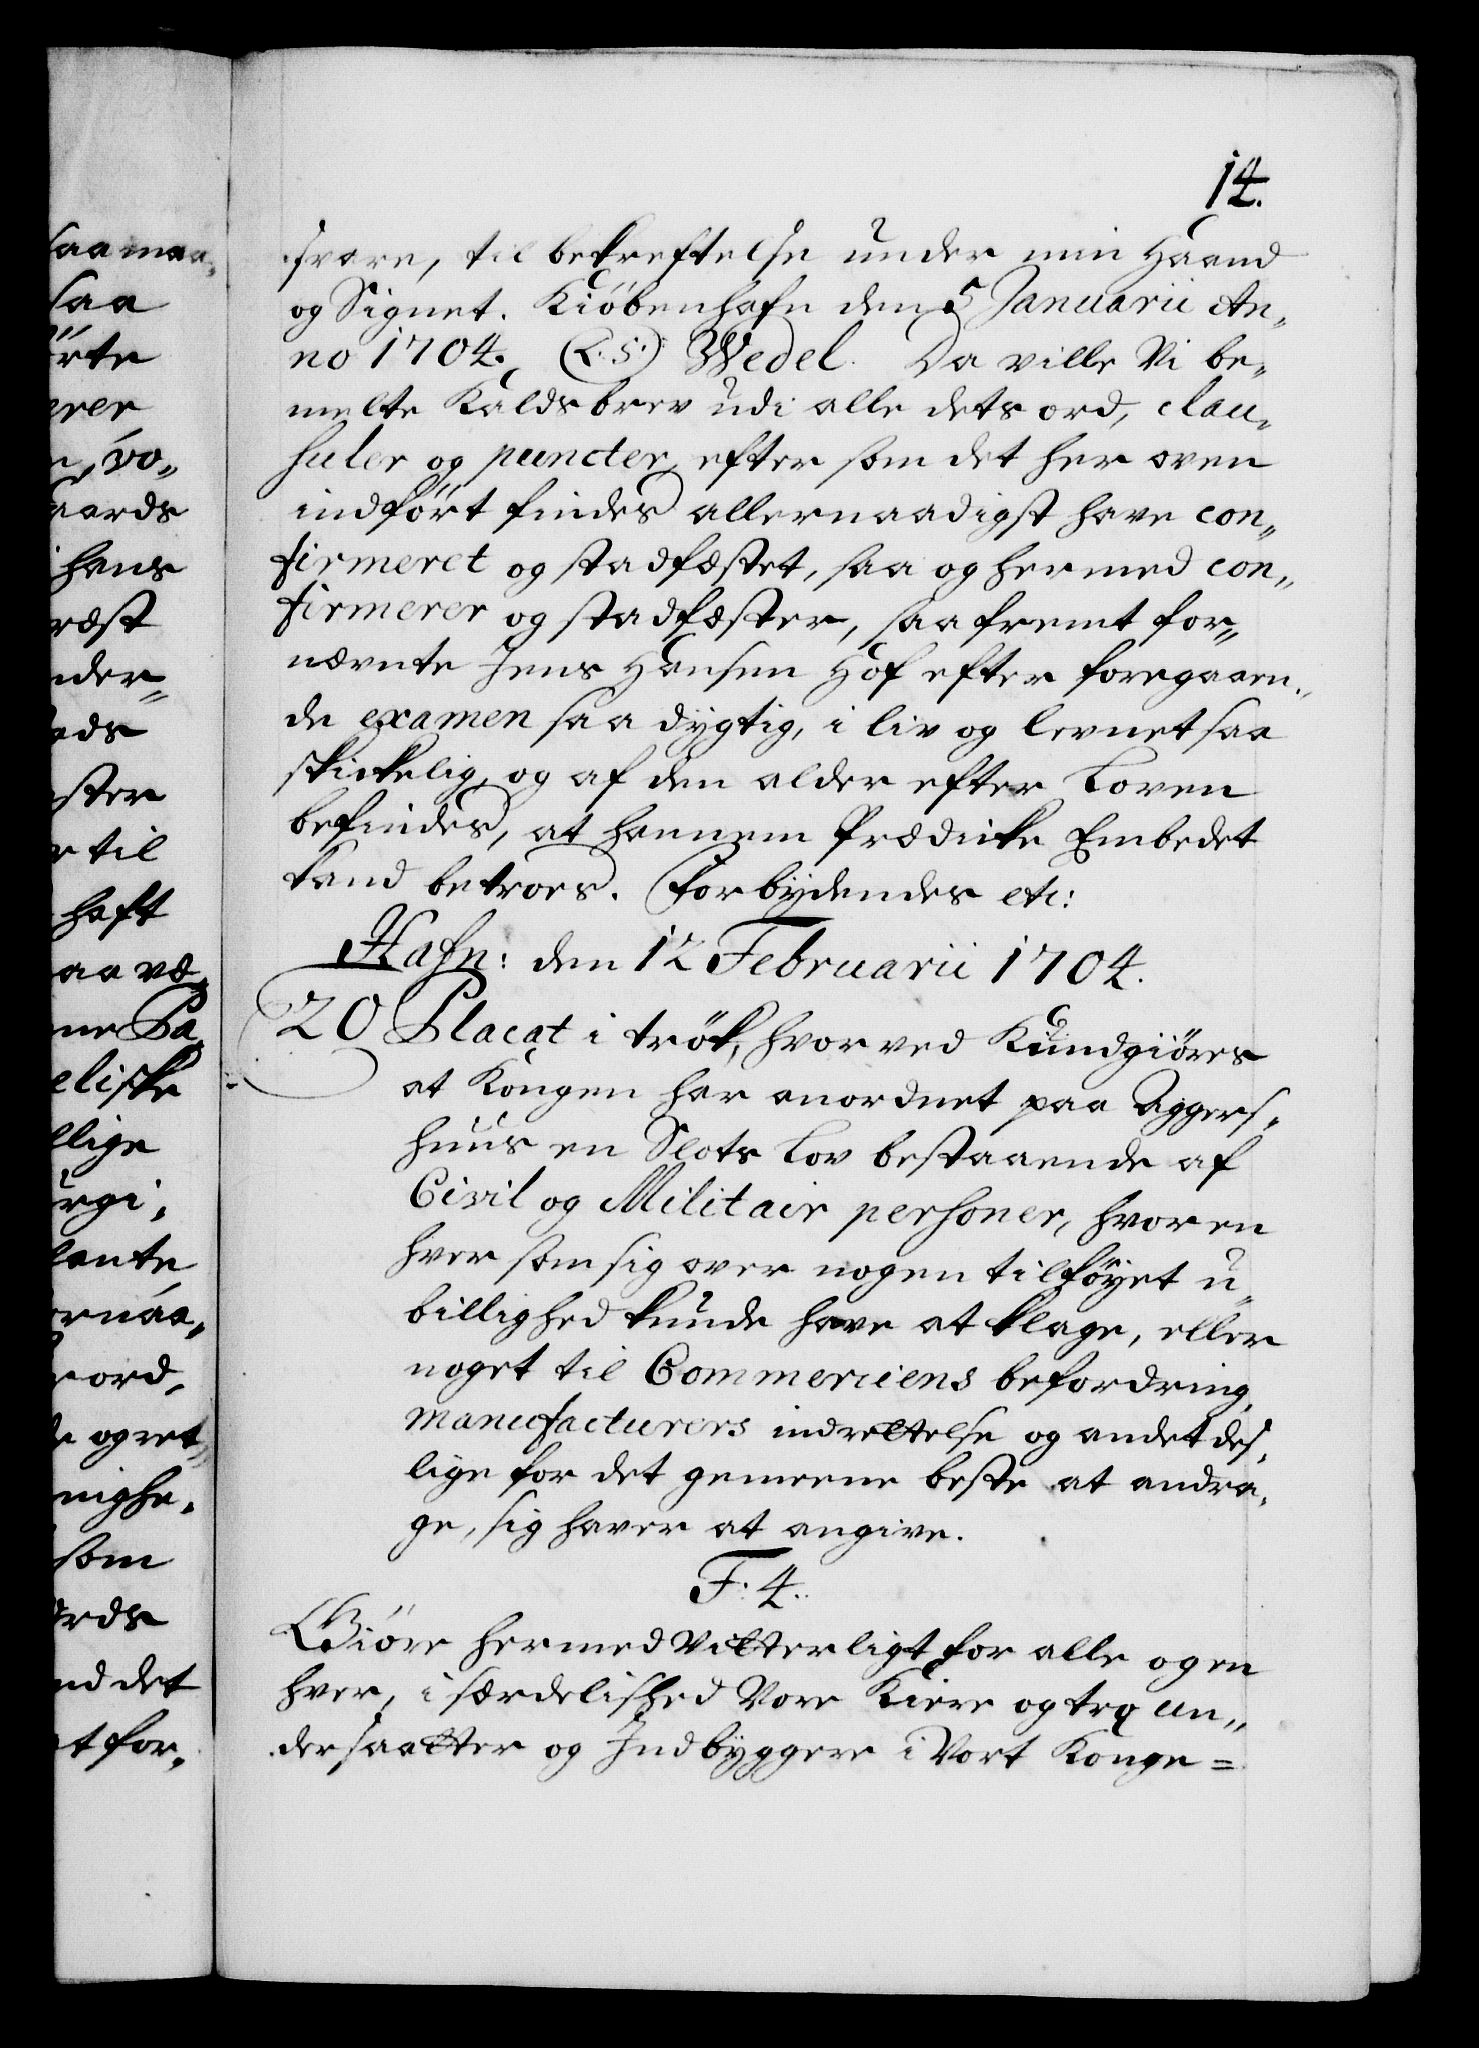 14.
svare, til bekreftelse under min Haand
og Signet. Kiöbenhafn den 5 Januarii An„
no 1704. (L.S.) Wedel. Da ville Vi be„
melte Kaldsbrev udi alle dets ord, clau„
suler og puncter, efter som det her oven
indfört findes allernaadigst have con„
firmeret og stadfæstet, saa og hermed con„
firmerer og stadfæster, saafremt for„
nævnte Jens Hansen Hof efter foregaaen„
de examen saa dygtig, i liv og levnet saa
skickelig, og af den alder efter Loven
befindes, at hannem Prædicke Embedet
kand betroes. Forbydendes etc:
Hafn: den 12 Februarii 1704.
20 Placat i tröck, hvorved Kundgiöres
at Kongen har anordnet paa Aggers„
huus en Slots Lov bestaaende af
Civil og Militair personer, hvor en
hver som sig over nogen tilföyet u„
billighed kunde have at klage, eller
noget til Commerciens befordring,
manufacturers indrettelse og andet des„
lige for det gemeene beste at andra„
ge, sig haver at angive.
F. 4.
Giöre hermed Vitterligt for alle og en
hver, i særdelished Vore Kiere og tro un„
dersaatter og Indbyggere i Vort Konge=
saa maa„
saa
örte
erer
vo„
aards
hans
ræst
nder„
ster
til
haft
aa væ„
ne Pa„
eliske
llige
urgi„
ord„
og ret„
nighe„
som
nd det
for„